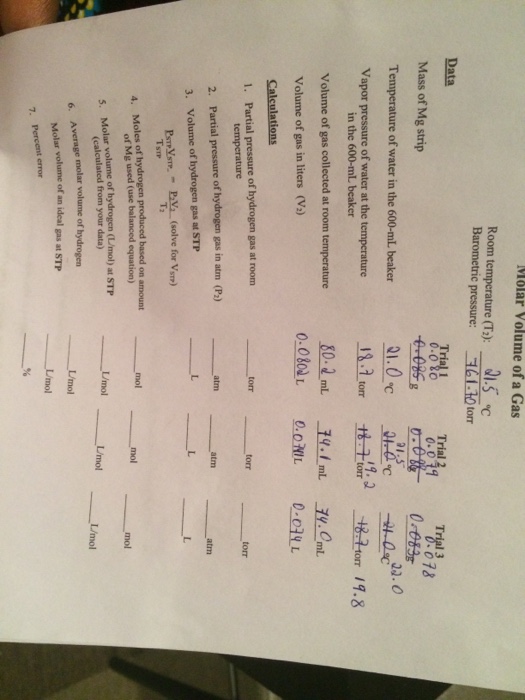 Molar Volume of a Gas
Room temperature (T₂): 21.5 °C
Barometric pressure: 761.70 torr
Data
Trial 1 Trial 2 Trial 3
0.080 0.079 0.078
Mass of Mg strip 0.085 g 0.082 0.083 g
21.5 22.0
Temperature of water in the 600-mL beaker 21.0 °C 21.0 °C 21.0 °C
Vapor pressure of water at the temperature 18.7 torr 18.7 torr 19.2 18.7 torr 19.8
in the 600-mL beaker
Volume of gas collected at room temperature 80.2 mL 74.1 mL 74.0 mL
Volume of gas in liters (V₂) 0.0802 L 0.0741 L 0.074 L
Calculations
1. Partial pressure of hydrogen gas at room ____ torr ____ torr ____ torr
temperature
2. Partial pressure of hydrogen gas in atm (P₂) ____ atm ____ atm ____ atm
3. Volume of hydrogen gas at STP ____ L ____ L ____ L
P_STP V_STP = P₂V₂ (solve for V_STP)
T_STP T₂
4. Moles of hydrogen produced based on amount ____ mol ____ mol ____ mol
of Mg used (use balanced equation)
5. Molar volume of hydrogen (L/mol) at STP ____ L/mol ____ L/mol ____ L/mol
(calculated from your data)
6. Average molar volume of hydrogen ____ L/mol
Molar volume of an ideal gas at STP ____ L/mol
7. Percent error ____ %